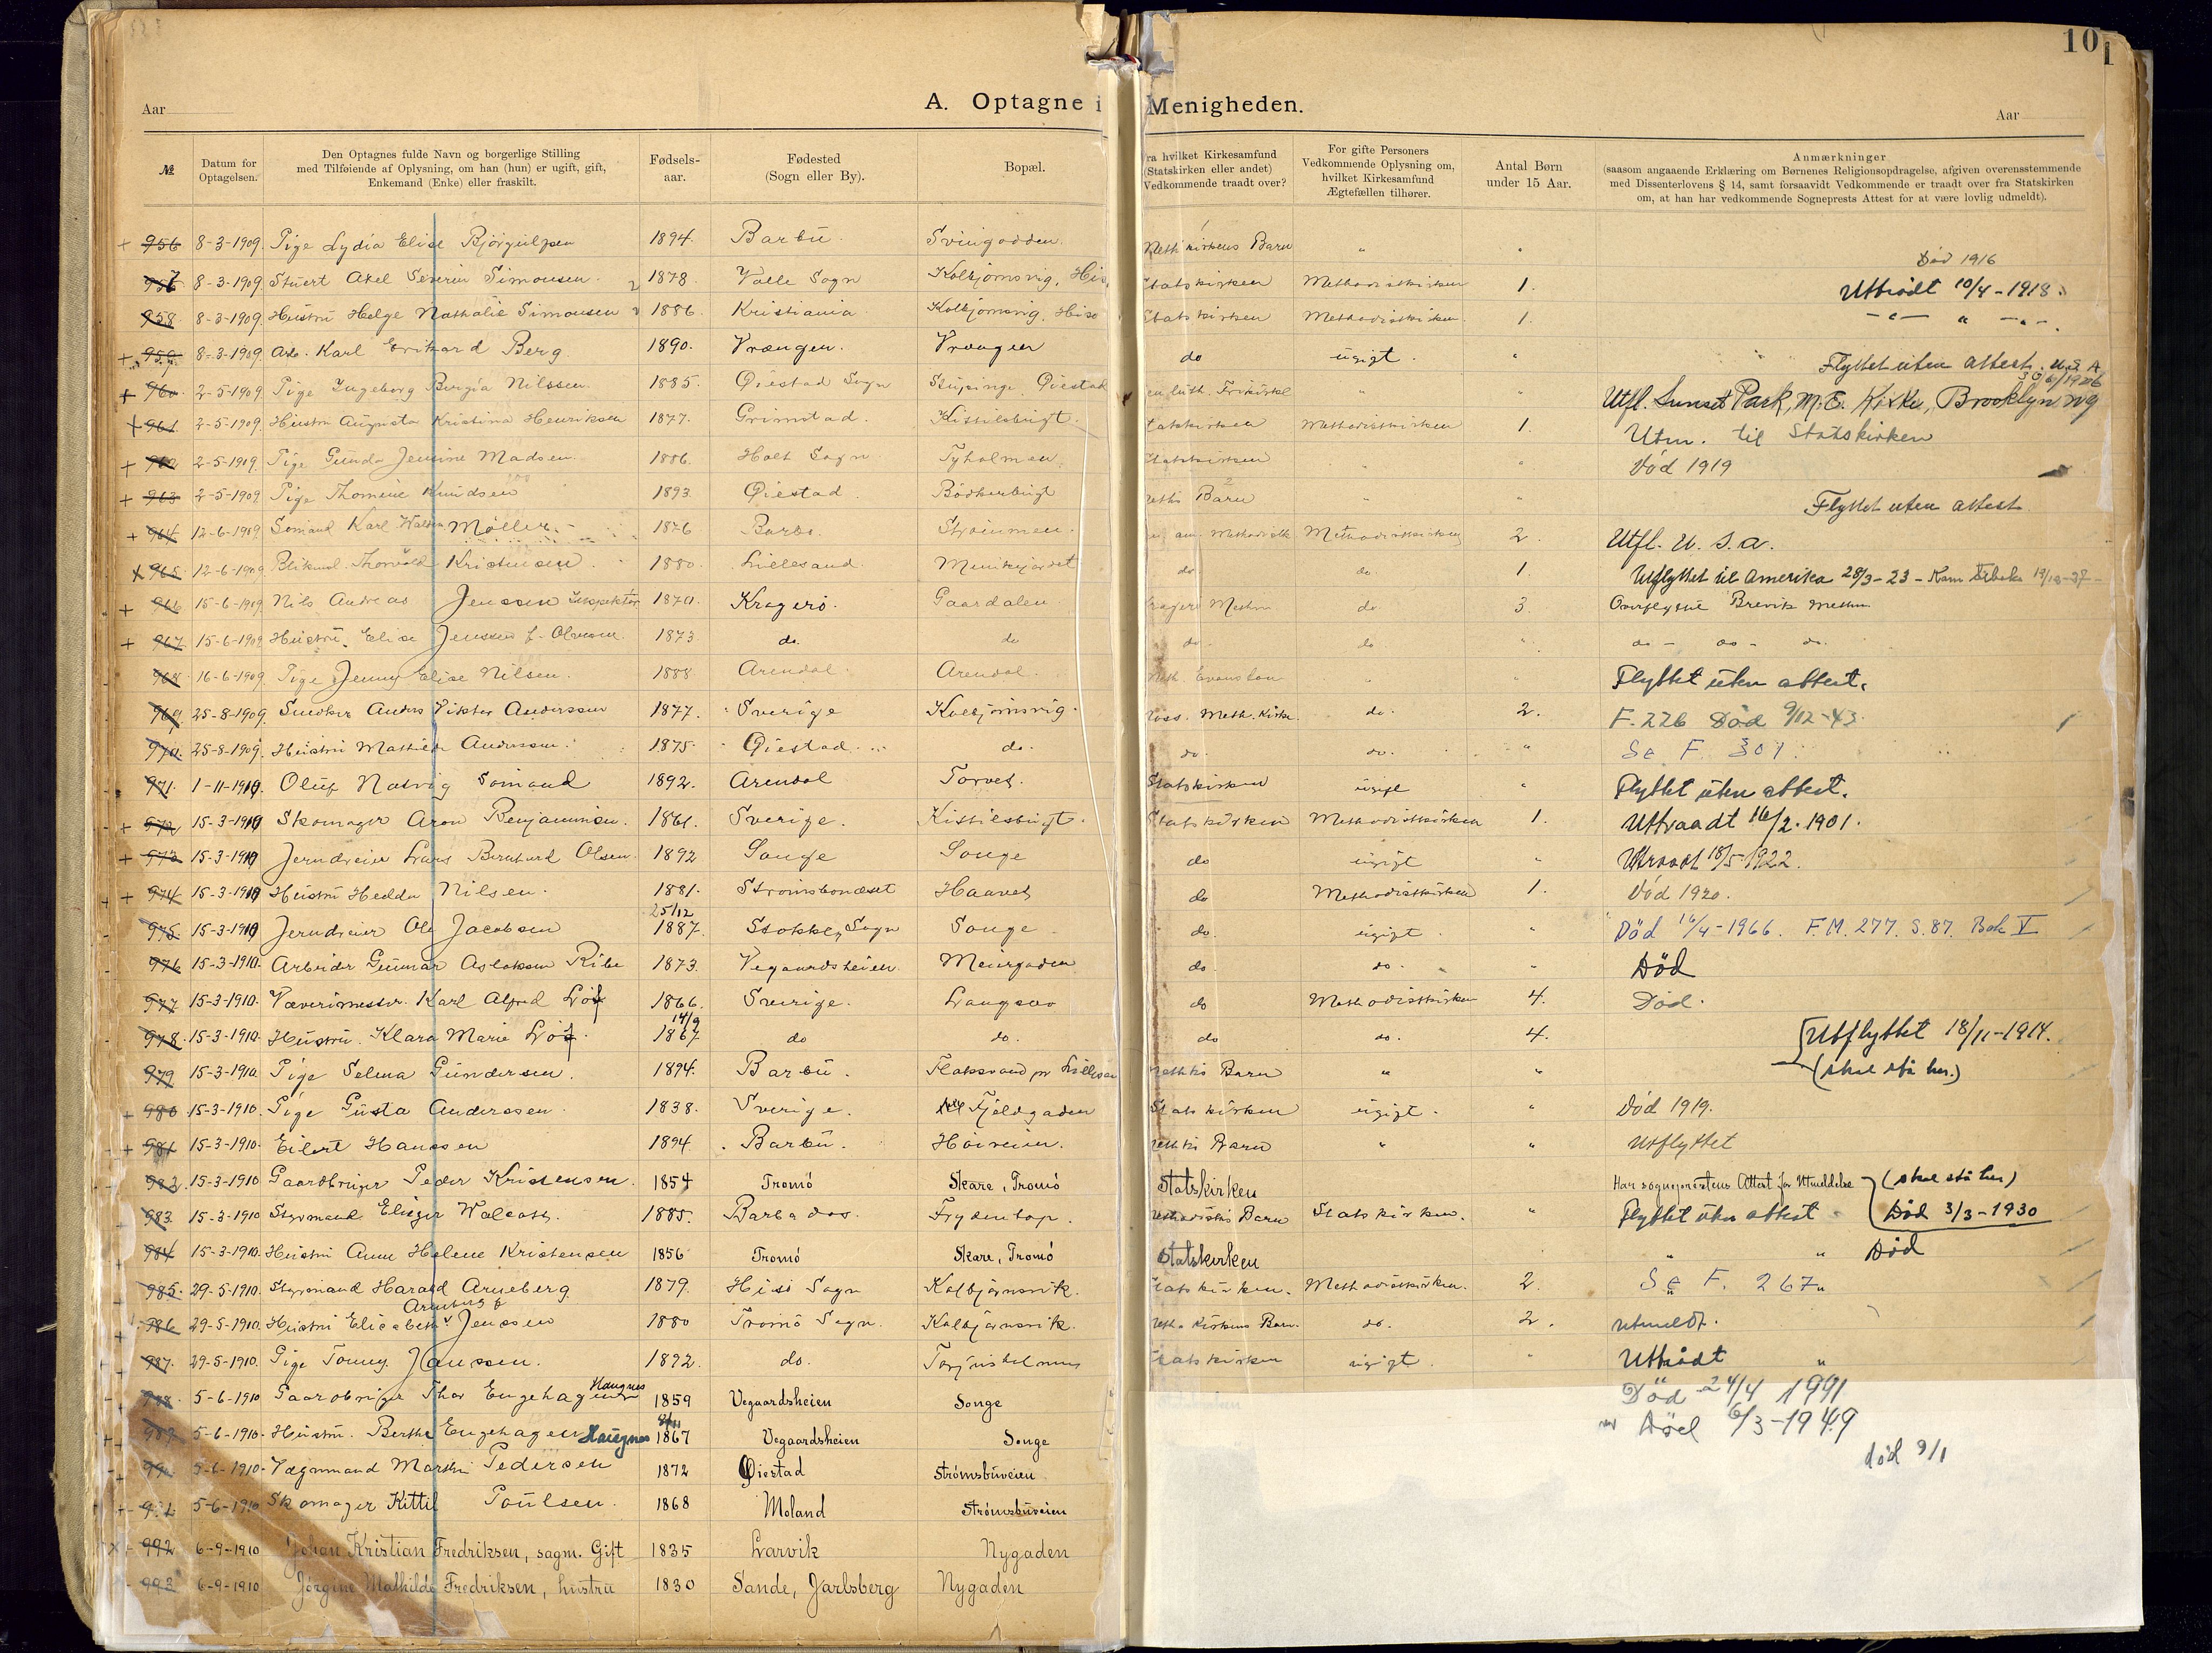 10
1
Aar A. Optagne i Menigheden. Aar
№ Datum for Optagelsen. Den Optagnes fulde Navn og borgerlige Stilling med Tilføiende af Oplysning, om han (hun) er ugift, gift, Enkemand (Enke) eller fraskilt. Fødsels-aar. Fødested (Sogn eller By). Bopæl. ra hvilket Kirkesamfund (Statskirken eller andet) Vedkommende traadt over? For gifte Personers Vedkommende Oplysning om, hvilket Kirkesamfund Ægtefællen tilhører. Antal Børn under 15 Aar. Anmærkninger (saasom angaaende Erklæring om Børnenes Religionsopdragelse, afgiven overensstemmende med Dissenterlovens § 14, samt forsaavidt Vedkommende er traadt over fra Statskirken om, at han har vedkommende Sogneprests Attest for at være lovlig udmeldt).
+ 956 8-3-1909. Pige Lydia Elise 1894. Barbu. Svinodden. Meth kirkens Barn " "
Død 1916
957 8-3-1909 Stuert Axel Severin Simonsen. 1878. Valle Sogn Kolbjørnsvig, His Statskirken Methodistkirken 1. Uttrådt 10/4-1918.
958. 8-3-1909. Hustru Helge Nathalie Simonsen 1886. Kristiania Kolbjørnsvig, Hisø Statskirken Methodistkirken. 1. — " — " — " —
+ 959. 8-3-1909. Arb. Karl Berg 1890. Vrængen. Vrængen do ugigt. " Flyttet uten attest. U.S.A
+ 960. 2-5-1909. Pige Ingeborg Nilssen. 1885. Øiestad Sogn Øiestad luth. Frikirke " " Utfl. Sunset Park, M.E. Kirke, Brooklyn
+ 961 2-5-1909. Hustru Augusta Kristina Henriksen 1877. Grimstad. Kittelsbugt. tatskirken Methodistkirken 1. Utm. til Statskirken
+ 962 2-5-1909. Pige Gunda Jensine Madsen. 1886. Holt Sogn Tyholmen. Statskirken " Død 1919
+ 963 2-5-1909 Pige Thomine Knudsen 1893. Øiestad. Bødkerbugt Barn " " Flyttet uten attest
+ 964 12-6-1909 Sømand Karl Møller. 1876 Barbo. Strømmen. Methodistk Methodistkirken 2. Utfl. U.S.A.
+ 965 12-6-1909 Thorvald Kristensen 1880. Lillesand. do do. 1. Utflyttet til Amerika 28/3-23 - Kom tilbake
+ 966 15-6-1909 Nils Andreas Jenssen Inspektør 1870. Kragerø. Gaardalen. do. 3. Overflyttet Brevik Meth.
+ 967 15-6-1909 Hustru. Elise Jenssen f. Olsen. 1873. do. do do. do. " do - do - do.
968 16-6-1909 Pige Jenny Elise Nilsen. 1888 Arendal. Arendal. " " Flyttet uten attest.
969 25-8-1909. Snedker Anders Viktor Anderssen 1877. Sverige Kolbjørnsvig. Meth. Kirke. do. 2. F. 226 Død 9/12-43.
970. 25-8-1909. Hustru Mathilde Anderssen. 1875. Øiestad. do. do. do. " Se F. 307.
971. 1-11-1910. Oluf Natvig Sømand 1892. Arendal Torvet. Statskirken ugigt " Flyttet uten attest.
+ 972 15-3-1910 Skomager Aron Benjaminsen. 1861. Sverige. Kittelsbugt. Statskirken Methodistkirken 1. Uttraadt 16/2. 1901.
+ 973 15-3-1910 Jerndreier Lars Bernhard Olsen. 1892 Songe Songe do ugigt " Uttraadt 18/5-1922.
+ 974 15-3-1910 Hustru Hedda Nilsen. 1881. Strømsbondset Haavet do Methodistkirken 1. Død 1920.
25/12
975 15-3-1910 Jerndreier Ole Jacobsen 1887. Stokken Sogn Songe do. ugigt. " Død 16/4-1966. F.M. 277. S. 87. Bok V
976 15-3-1910. Arbeider Gunnar Aslaksen Ribe 1873. Vegaardsheien Meiergaden do. do. " Død
977 15-3-1910. Væverimester. Karl Alfred Löf 1866. Sverige. Langsæ do Methodistkirken 4. Død.
14/9
978. 15-3-1910. Hustru. Klara Marie Löf. 1867 do do. do do. 4. Utflyttet 18/11-1914.
979 15-3-1910. Pige Selma Gundersen. 1894. Barbu. Flaksvand pr Lillesan Barn " " (skal stå her.)
+ 980 15-3-1910. Pige Gusta Anderssen. 1838. Sverige. Fjeldgaden Statskirken ugigt. " Død 1919.
+ 981 15-3-1910. Eilert Hanssen 1894. Barbu. Høiveien. Barn " " Utflyttet
982. 15-3-1910 Gaardbruger Peder Kristensen. 1854 Tromö Skare, Tromö Statskirken Har sogneprestens Attest for Utmeldelse (skal stå her)
983. 15-3-1910 Styrmand Walcott. 1885. Barbados. Frydentop. Methodists Barn Statskirken. " Flyttet uten attest Død 3/3-1930
984 15-3-1910. Hustru Anne Helene Kristensen 1856 Tromö Skare, Tromö Statskirken " " Død
985. 29-5-1910. Styrmand Harald Arneberg 1879. Hisö Sogn Kolbjørnsvik. Statskirken. Methodistkirken. 2. Se F. 267
Arneberg f
986 29-5-1910. Hustru Elisabeth Jenssen 1880 Tromö Sogn. Kolbjørnsvik. Meth. Kirkens Barn. do. 2. utmeldt.
987. 29-5-1910. Pige Tomny Hanssen. 1892. do. Torjusholmen tatskirken ugigt. " Uttrådt "
Haugnes
988. 5-6-1910 Gaardbruger Thor Engehagen 1859 Vegaardsheien Songe Død 24/4 1991
989. 5-6-1910. Hustru. Berthe Engehagen Haugnes 1867 Vegaardsheien Songe Død 6/3-1949
990 5-6-1910. Vægmand Martin Pedersen 1872 Øiestad Strömsbuveien død 9/1
991 5-6-1910 Skomager Kittil Poulsen. 1868 Moland Strömsbuveien
992 6-9-1910 Johan Kristian Fredriksen, sagm. Gift 1835 Larvik Nygaden
993 6-9-1910 Jörgine Mathilde Fredriksen, hustru 1830 Sande, Jarlsberg Nygaden